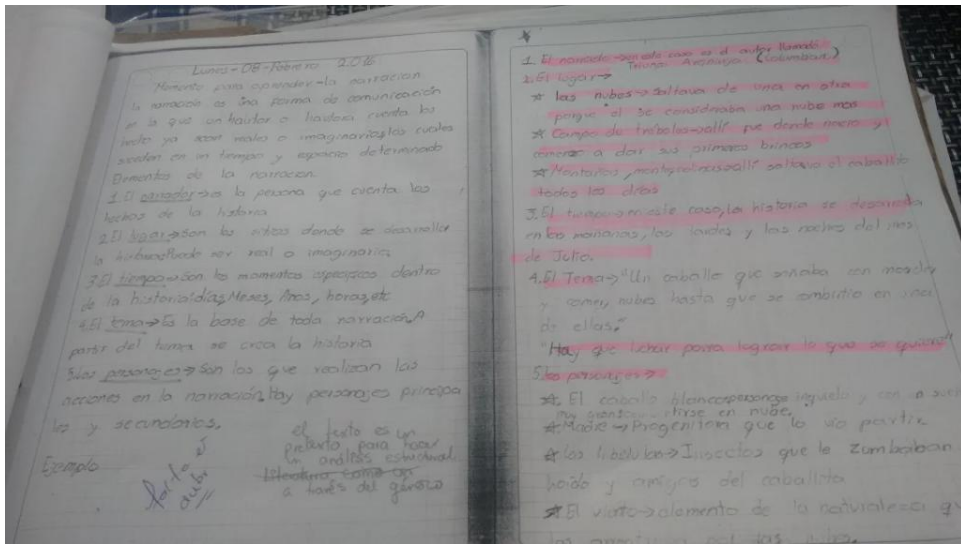 Lunes - 08 - Febrero 2.016
Momento para aprender - la narracion
la narración es una forma de comunicación
en la que un hablor o habladora cuenta los
hecho ya sean reales o imaginarios, los cuales
suceden en un tiempo y espacio determinado
Elementos de la narracion.
1. El narrador → es la persona que cuenta los
hechos de la historia
2. El lugar → Son los sitios donde se desarrolla
la historia Puede ser real o imaginario.
3. El tiempo → Son los momentos especificos dentro
de la historia: días, Meses, Años, horas, etc
4. El tema → Es la base de toda narración. A
partir del tema se crea la historia
5. Los personajes → Son los que realizan las
acciones en la narración. Hay personajes principa
les y secundarios.
Ejemplo
el texto es un
pretexto para hacer
un análisis estructural
Literatura como un
a través del género
1. El narrador → en este caso es el autor llamado
Triunfo Arciniegas (colombiano)
2. El lugar →
* las nubes → Saltava de una en otra
porque el se consideraba una nube mas
* Campo de trebolos → allí fue donde nacio y
comenzo a dar sus primeros brincos
* Montañas, → allí saltava el caballito
todos los días
3. El tiempo → en este caso, la historia se desarrolla
en las mañanas, las tardes y las noches del mes
de Julio.
4. El Tema → "Un caballo que soñaba con
y comer nubes hasta que se combirtio en una
de ellas."
"Hay que luchar para lograr lo que se quiere"
5. Los personajes →
* El caballo blanco → personaje inquieto y con
en nube.
* Madre → Progenitora que lo vio partir
* Las libelulas → Insectos que le zumbaban
hoido y amigos del caballito
* El viento → elemento de la naturaleza